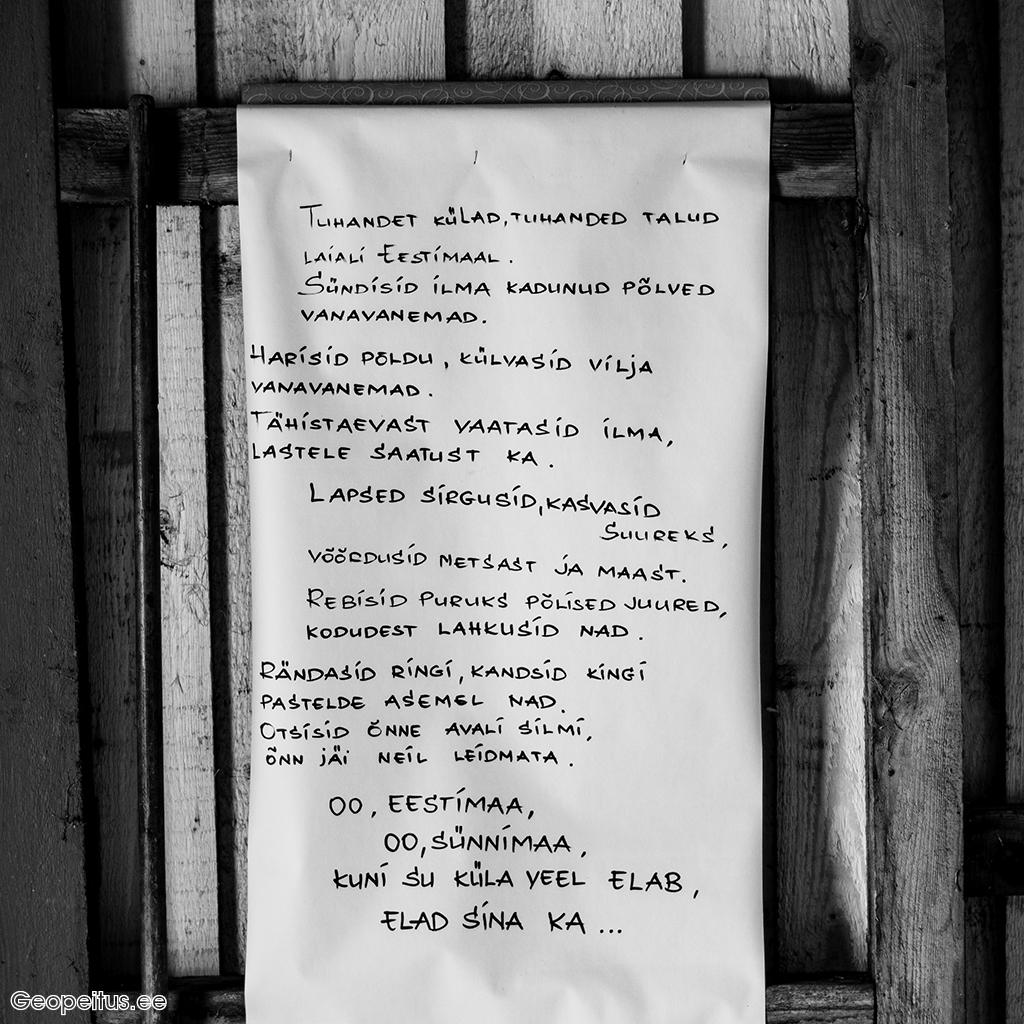 Tuhandet külad, tuhanded talud
laiali Eestimaal.
Sündisid ilma kadunud põlved
vanavanemad.
Harisid põldu, külvasid vilja
vanavanemad.
Tähistaevast vaatasid ilma,
lastele saatust ka.
Lapsed sirgusid, kasvasid
suureks,
võõrdusid metsast ja maast.
Rebisid puruks põlised juured,
kodudest lahkusid nad.
Rändasid ringi, kandsid kingi
pastelde asemel nad.
Otsisid õnne avali silmi,
õnn jäi neil leidmata.
OO, EESTIMAA,
OO, SÜNNIMAA,
KUNI SU KÜLA VEEL ELAB,
ELAD SINA KA...
Geopeitus.ee